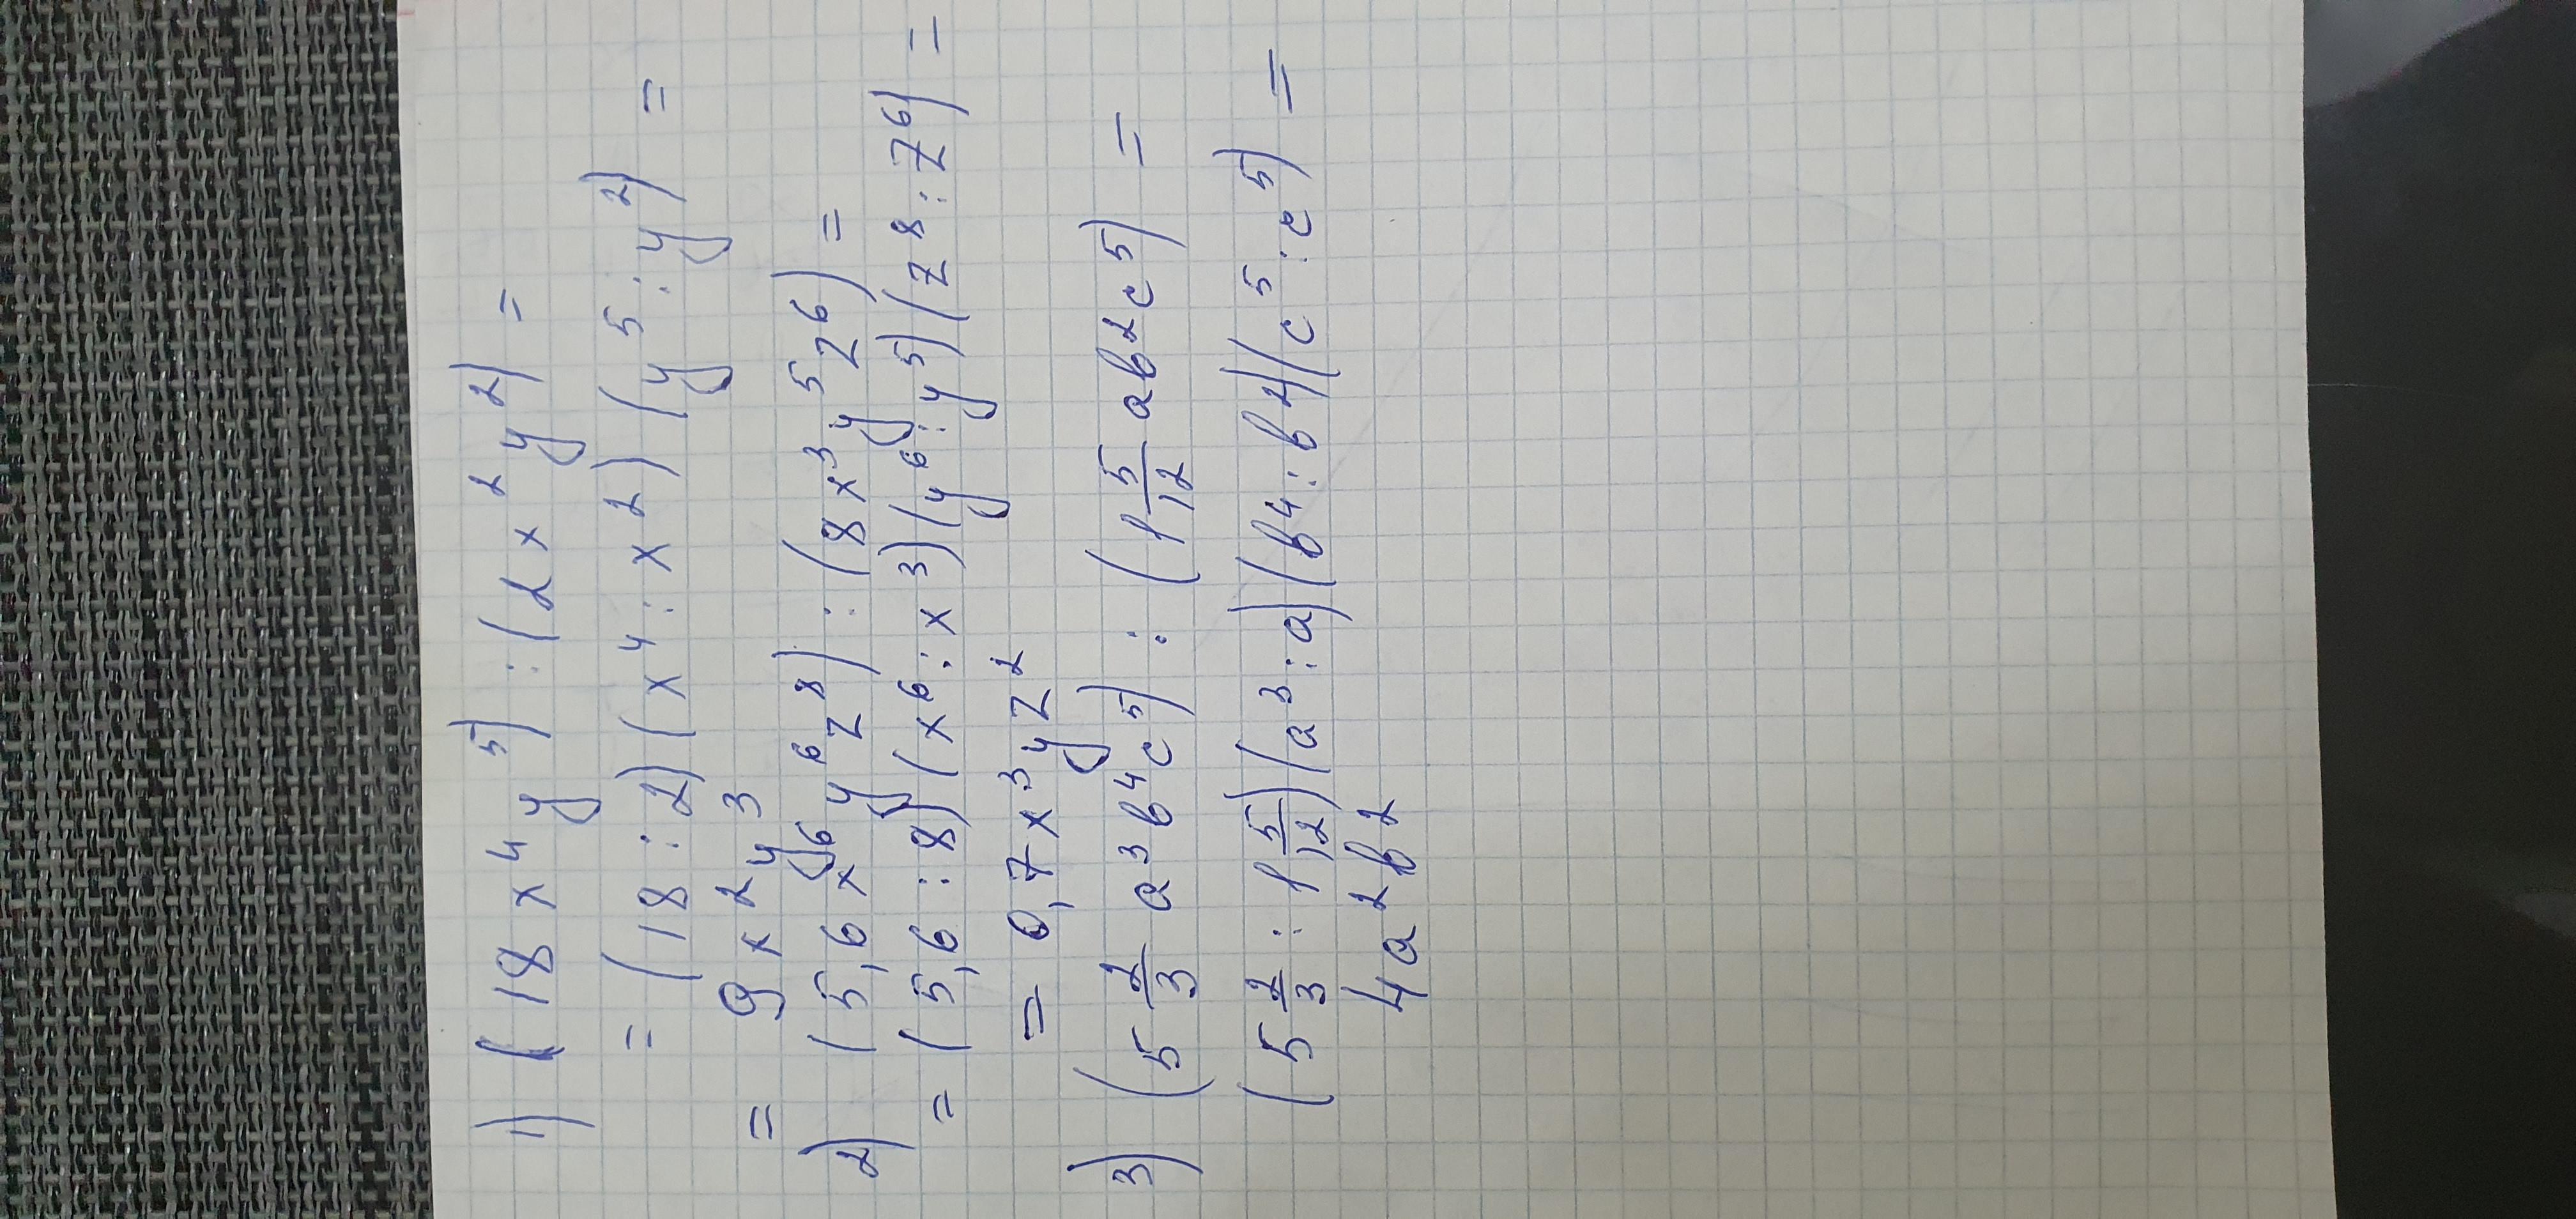 1) (18x⁴y⁵) : (2x²y²) =
= (18 : 2)(x⁴ : x²)(y⁵ : y²) =
= 9x²y³
2) (5,6x⁶y⁶z⁸) : (8x³y⁵z⁶) =
= (5,6 : 8)(x⁶ : x³)(y⁶ : y⁵)(z⁸ : z⁶) =
= 0,7x³yz²
3) (5 2/3 a³b⁴c⁵) : (1 5/12 ab²c⁵) =
(5 2/3 : 1 5/12)(a³ : a)(b⁴ : b²)(c⁵ : c⁵) =
4a²b²